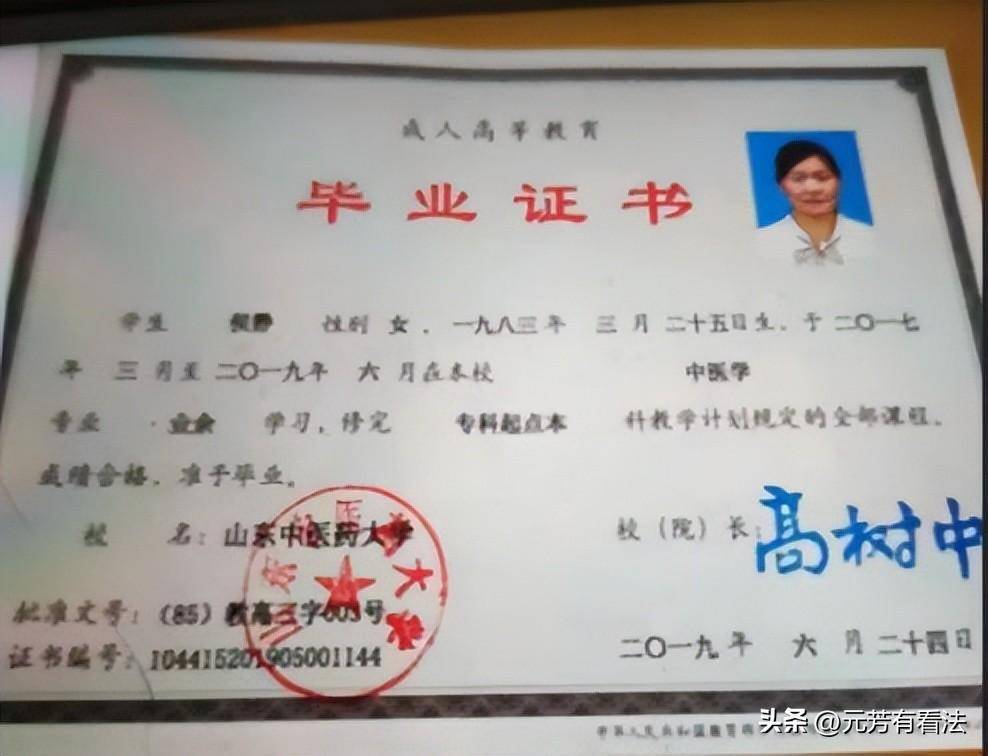 成人高等教育
毕业证书
学生 侯静 性别 女，一九八三年 三 月 二十五日生，于 二〇一七
年 三 月至 二〇一九年 六 月在本校 中医学
专业 业余 学习，修完 专科起点本 科教学计划规定的全部课程，
成绩合格，准予毕业。
校 名：山东中医药大学
校（院）长：高树中
批准文号：（85）教高三字003号
证书编号：104415201905001144
二〇一九年 六 月 二十四日
中华人民共和国教育
头条 @元芳有看法